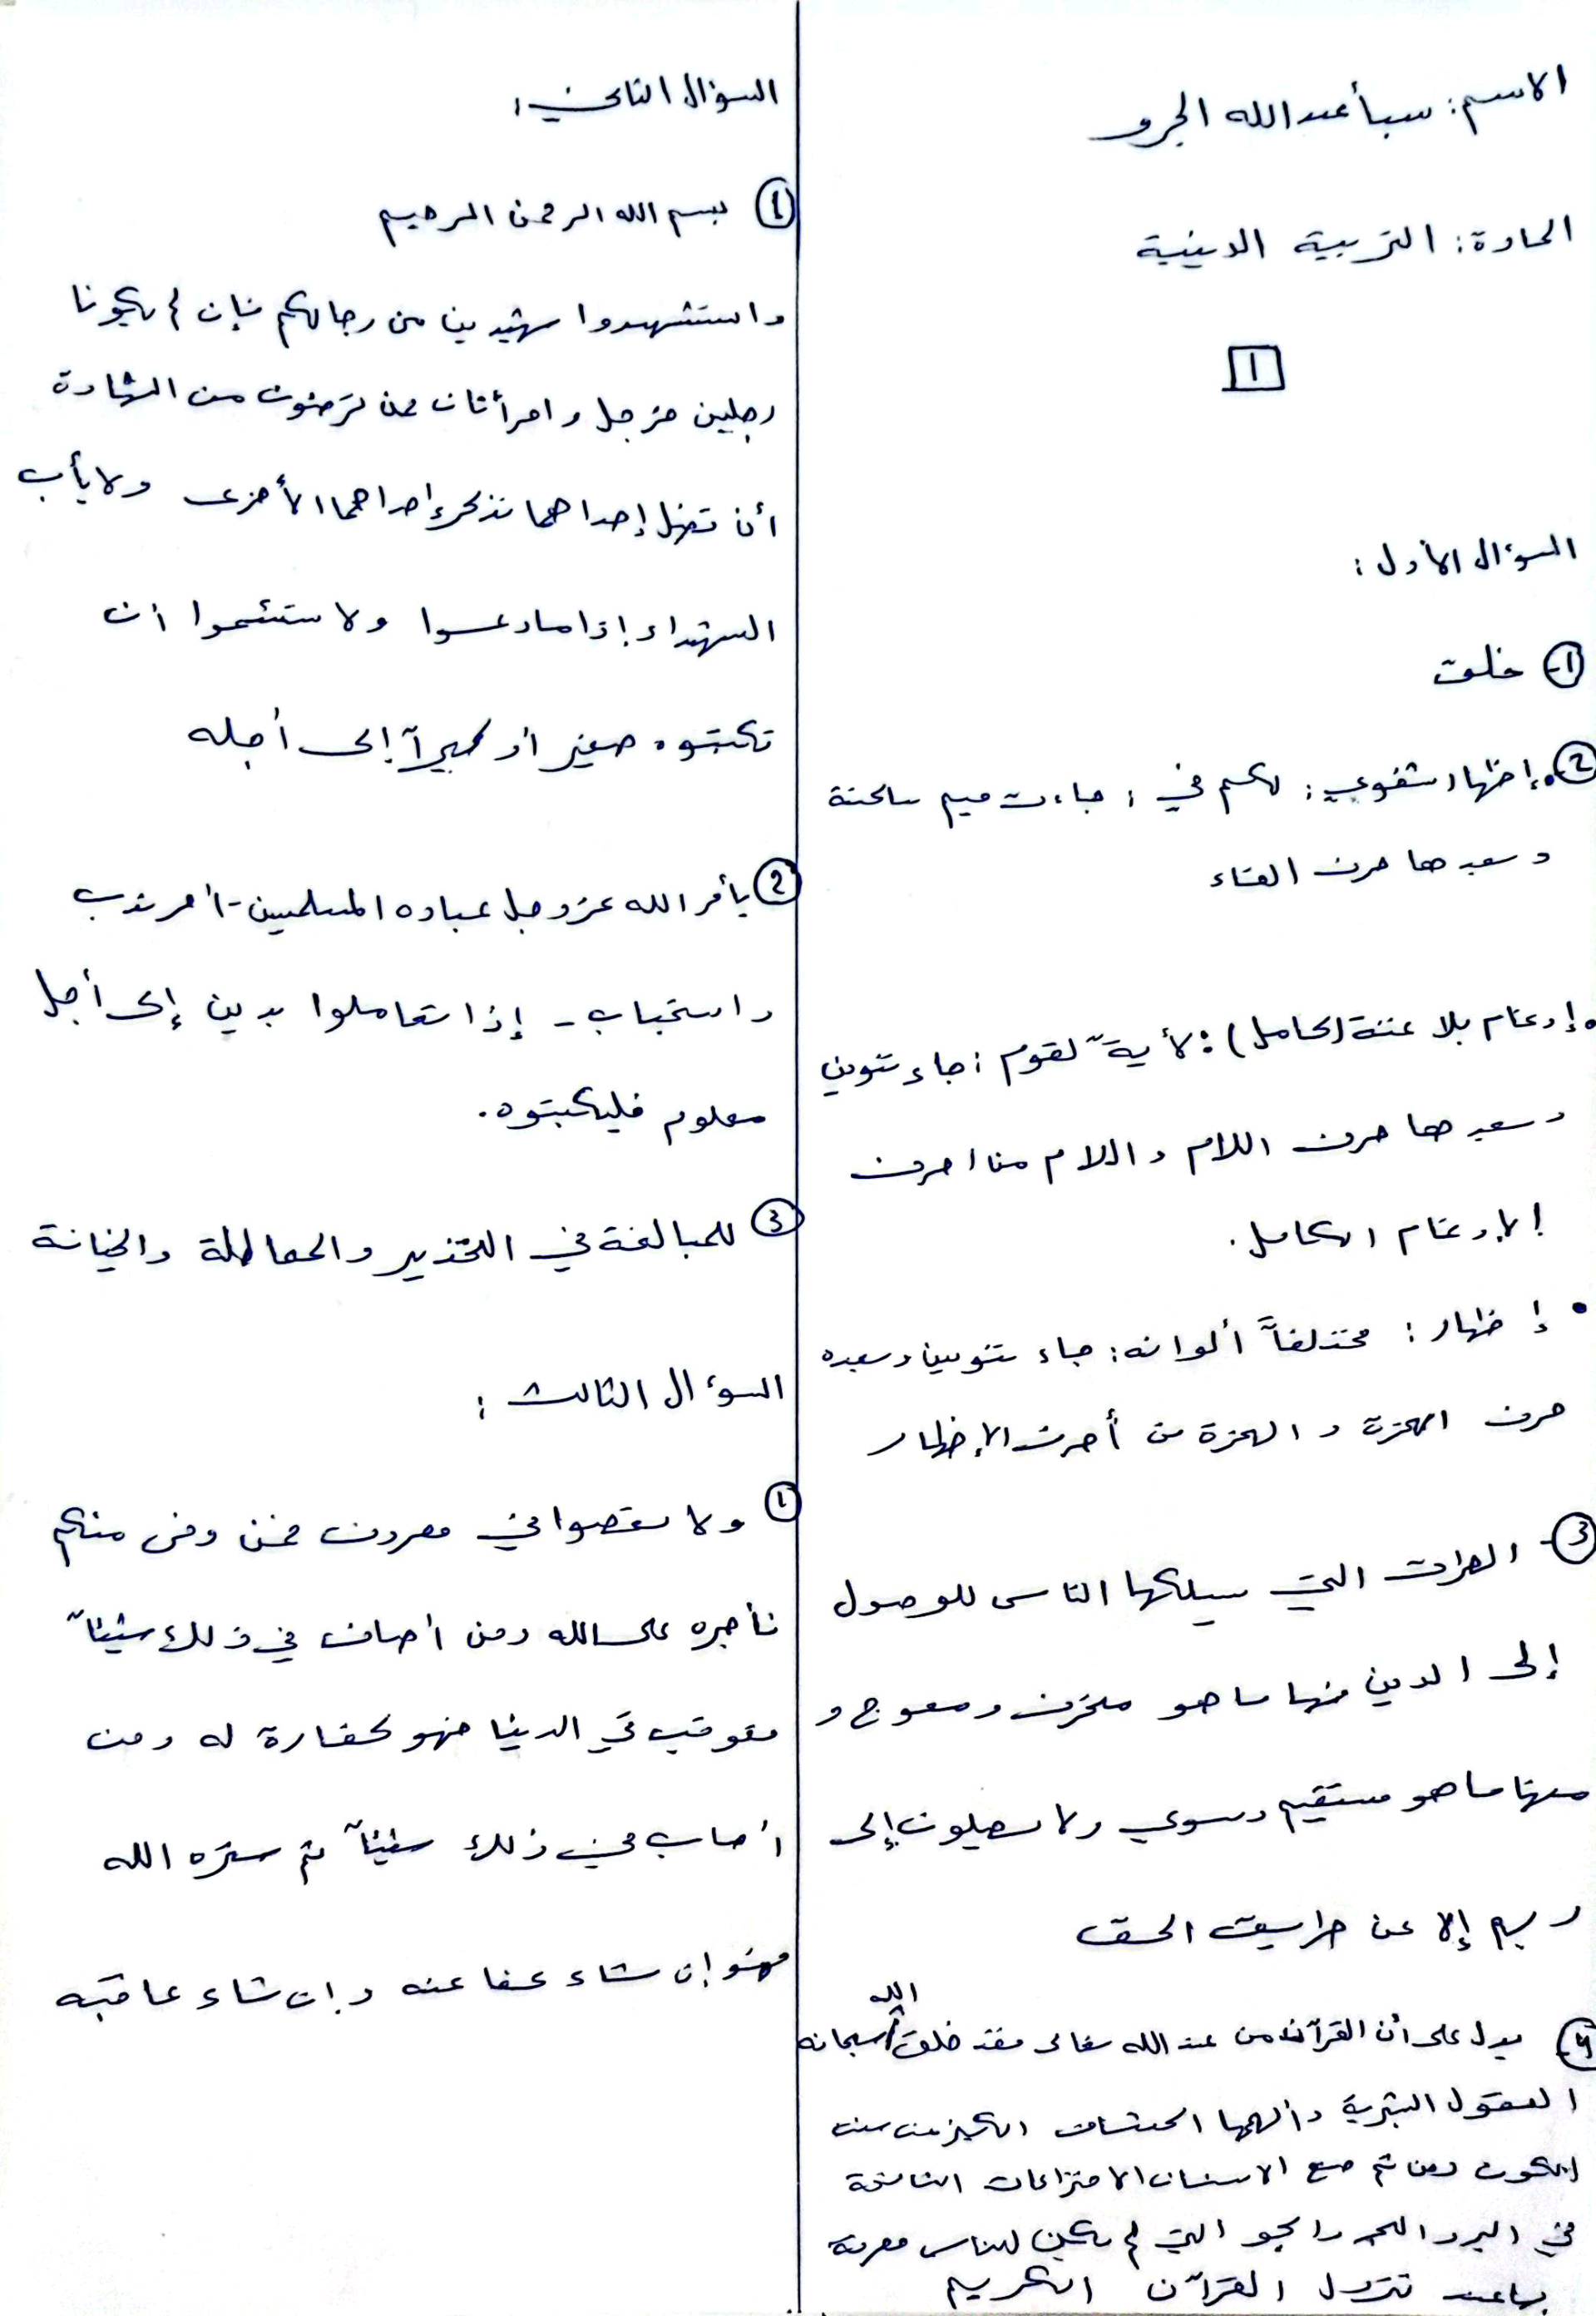 الاسم: سبأ عبد الله الجرو
المادة: التربية الدينية
1
السؤال الأول:
1- خلق
2- إظهار شفوي: لكم في: جاءت ميم ساكنة
وبعدها حرف الفاء
• إدغام بلا غنة (كامل): لأيةً لقوم: جاء تنوين
وبعدها حرف اللام واللام من احرف
الإدغام الكامل.
• إظهار: مختلفاً ألوانه: جاء تنوين وبعده
حرف الهمزة و الهمزة من أحرف الإظهار
3- الطرق التي يسلكها الناس للوصول
إلى الدين منها ما هو منحرف ومعوج و
منها ما هو مستقيم وسوي ولا يصلون إلى
ربهم إلا عن طريق الحق
4- يدل على أن القرآن من عند الله تعالى فقد خلق الله سبحانه
العقول البشرية وألهمها اكتشاف الكثير من سنن
الكون ومن ثم صنع الانسان الاختراعات النافعة
في البر والبحر والجو التي لم يكن للناس معرفة
بها عند نزول القرآن الكريم
السؤال الثاني:
1 بسم الله الرحمن الرحيم
واستشهدوا شهيدين من رجالكم فإن لم يكونا
رجلين فرجل وامرأتان ممن ترضون من الشهادة
أن تضل إحداهما تذكر إحداهما الأخرى ولا يأب
الشهداء إذا ما دعوا ولا تسئموا أن
تكتبوه صغير أو كبيراً إلى أجله
2 يأمر الله عز وجل عباده المسلمين - أمر ندب
واستحباب - إذا تعاملوا بدين إلى أجل
معلوم فليكتبوه.
3 للمبالغة في التحذير والمماطلة والخيانة
السؤال الثالث:
1 ولا تعصوا في معروف فمن وفى منكم
فأجره على الله ومن أصاب في ذلك شيئاً
فعوقب في الدنيا فهو كفارة له ومن
أصاب في ذلك شيئاً ثم ستره الله
فهو إن شاء عفا عنه وإن شاء عاقبه